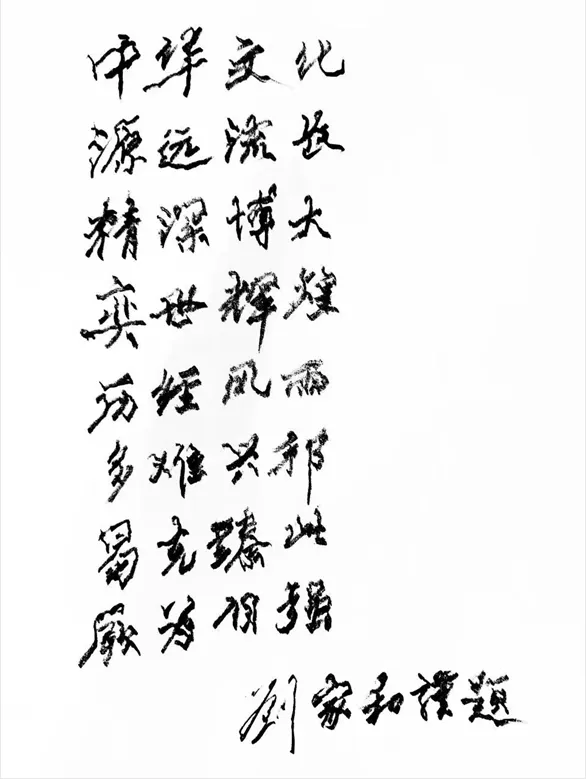 中华文化
源远流长
精深博大
奕世辉煌
历经风雨
多难兴邦
曷克臻此
厥为自强
劉家和謹題